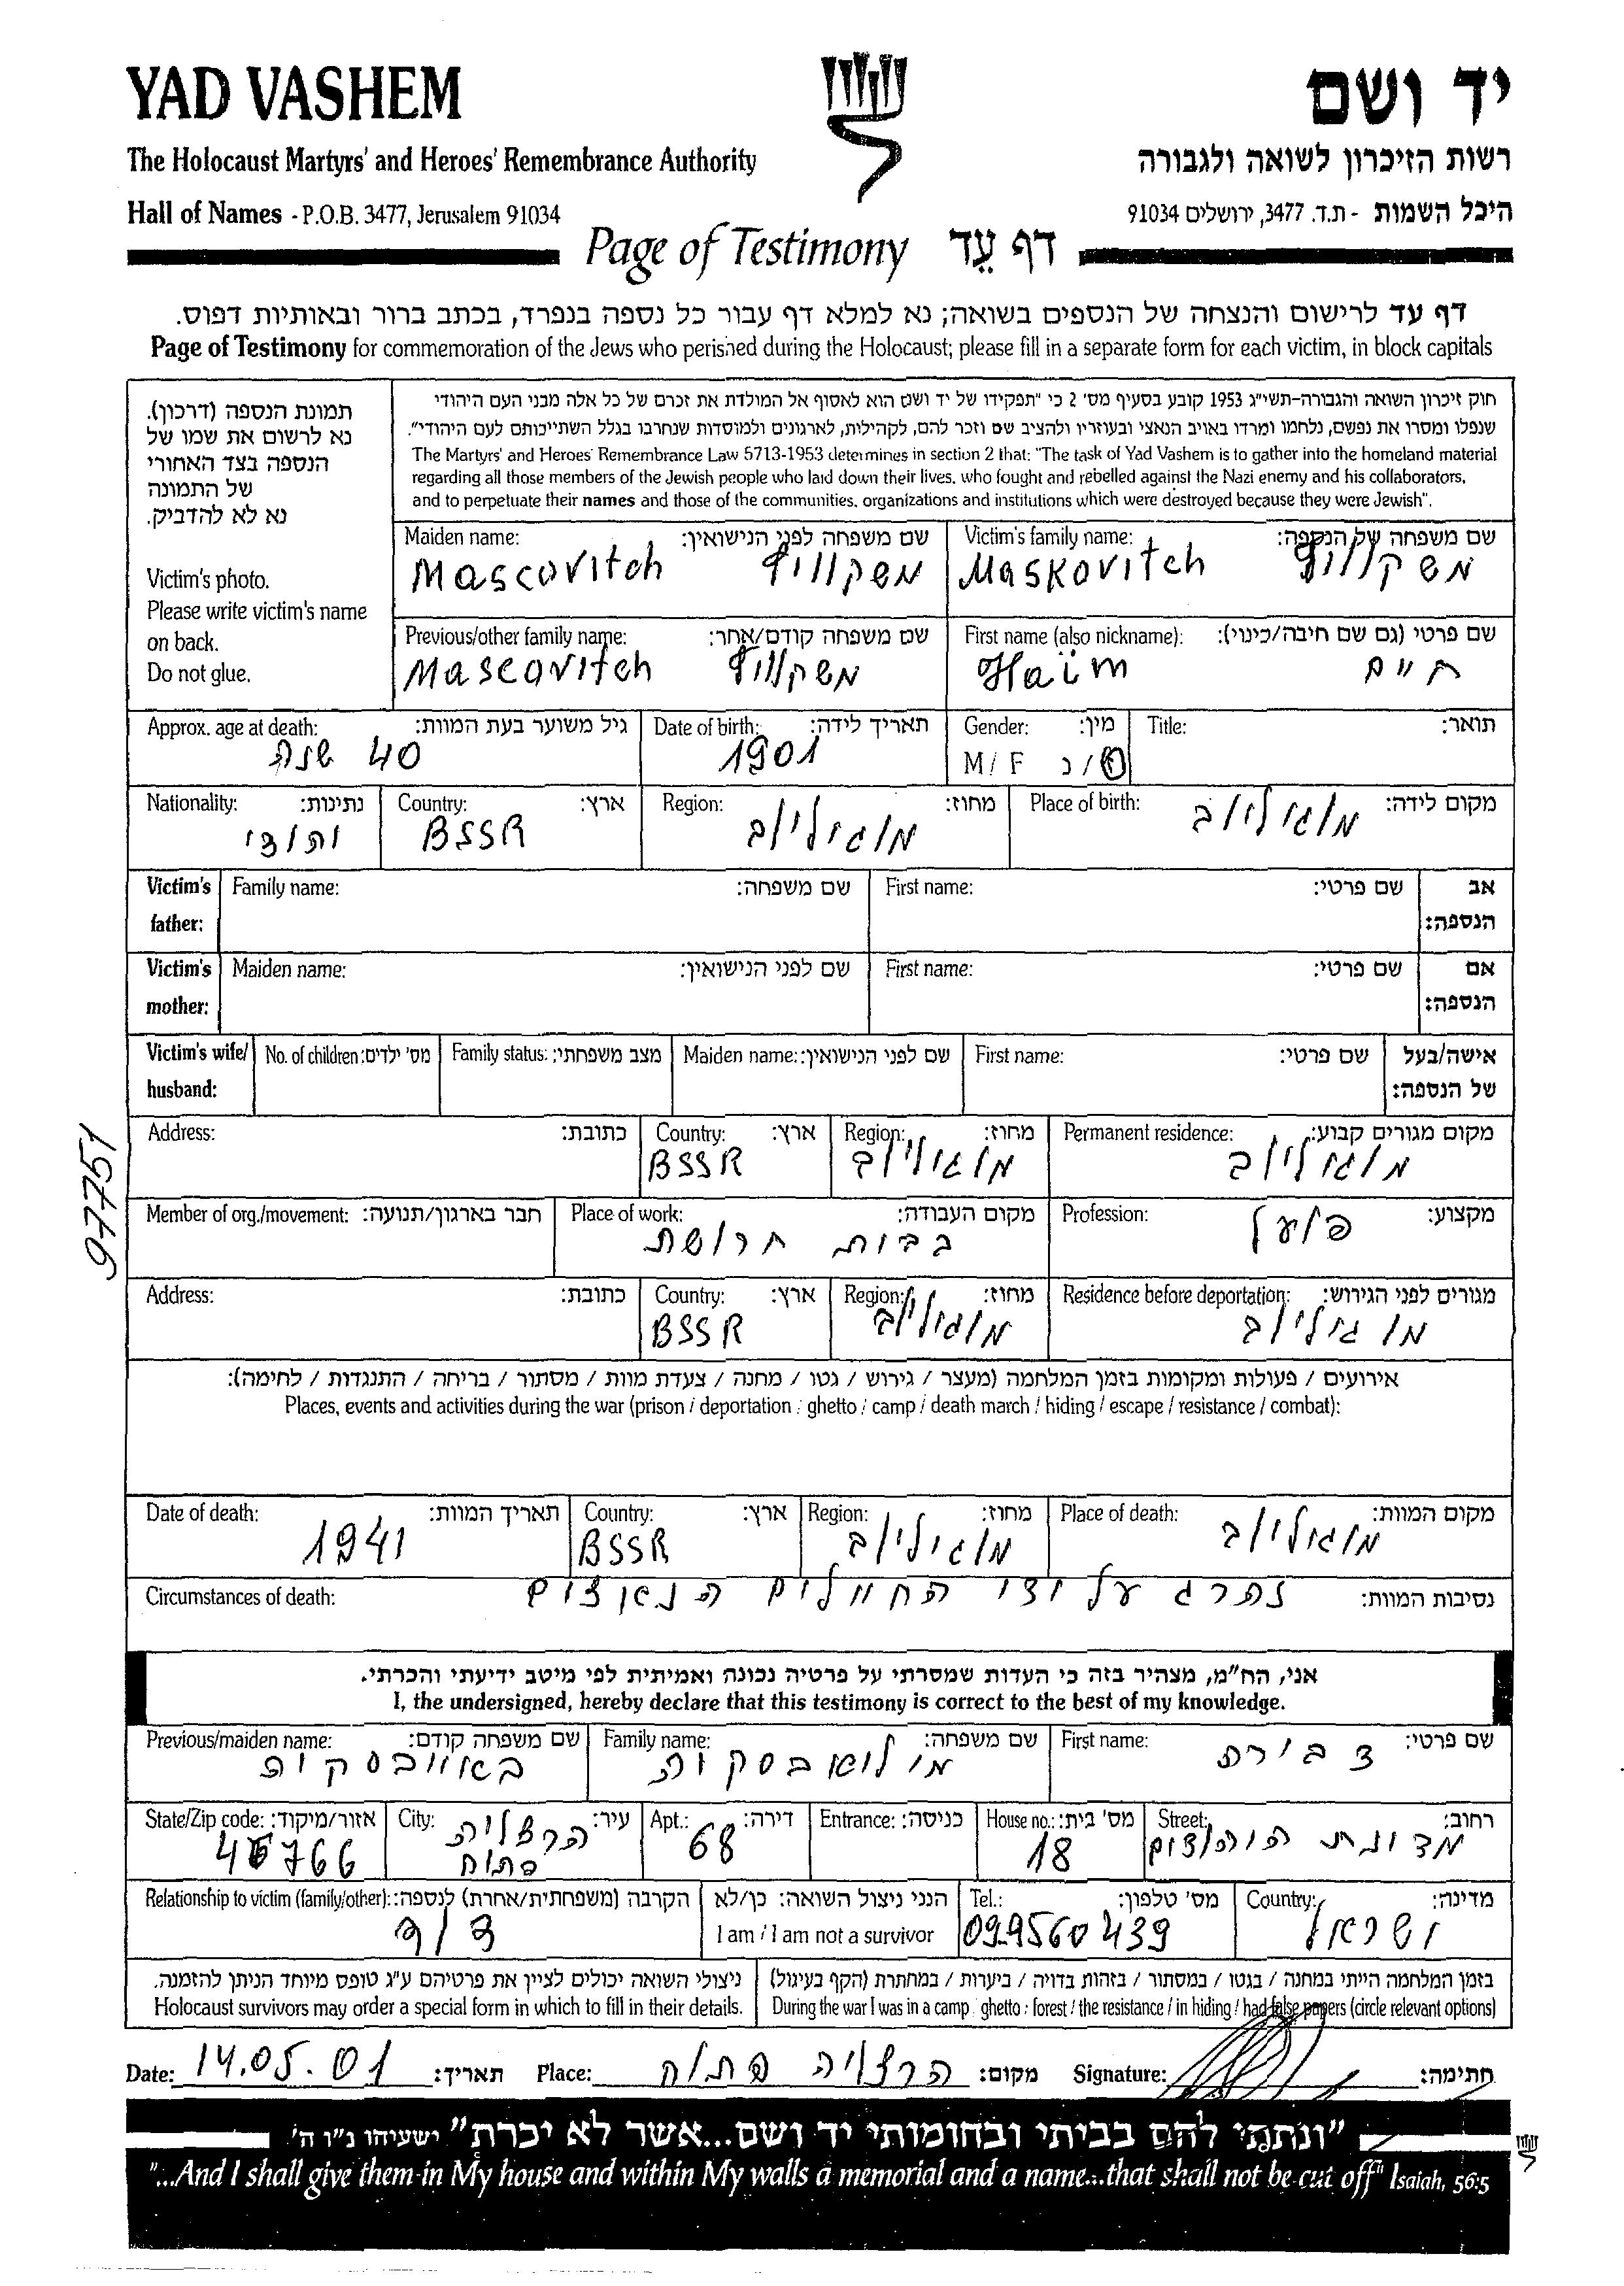 YAD VASHEM
יד ושם
The Holocaust Martyrs' and Heroes' Remembrance Authority
רשות הזיכרון לשואה ולגבורה
Hall of Names - P.O.B. 3477, Jerusalem 91034
היכל השמות - ת.ד. 3477, ירושלים 91034
Page of Testimony דף עֵד
דף עד לרישום והנצחה של הנספים בשואה; נא למלא דף עבור כל נספה בנפרד, בכתב ברור ובאותיות דפוס.
Page of Testimony for commemoration of the Jews who perished during the Holocaust; please fill in a separate form for each victim, in block capitals
תמונת הנספה (דרכון).
נא לרשום את שמו של
הנספה בצד האחורי
של התמונה
נא לא להדביק.
Victim's photo.
Please write victim's name
on back.
Do not glue.
חוק זיכרון השואה והגבורה-תשי"ג 1953 קובע בסעיף מס' 2 כי "תפקידו של יד ושם הוא לאסוף אל המולדת את זכרם של כל אלה מבני העם היהודי
שנפלו ומסרו את נפשם, נלחמו ומרדו באויב הנאצי ובעוזריו ולהציב שם וזכר להם, לקהילות, לארגונים ולמוסדות שנחרבו בגלל השתייכותם לעם היהודי".
The Martyrs' and Heroes' Remembrance Law 5713-1953 determines in section 2 that: "The task of Yad Vashem is to gather into the homeland material
regarding all those members of the Jewish people who laid down their lives, who fought and rebelled against the Nazi enemy and his collaborators,
and to perpetuate their names and those of the communities, organizations and institutions which were destroyed because they were Jewish".
Maiden name: שם משפחה לפני הנישואין: Victim's family name: שם משפחה של הנספה:
Mascovitch משקוויץ Maskovitch משקוויץ
Previous/other family name: שם משפחה קודם/אחר: First name (also nickname): שם פרטי (גם שם חיבה/כינוי):
Mascovitch משקוויץ Haïm חיים
Approx. age at death: גיל משוער בעת המוות: Date of birth: תאריך לידה: Gender: מין: Title: תואר:
40 שנה 1901 M / F ז/נ
Nationality: נתינות: Country: ארץ: Region: מחוז: Place of birth: מקום לידה:
יהודי BSSR מוגיליוב מוגיליוב
Victim's father: Family name: שם משפחה: First name: שם פרטי: אב הנספה:
Victim's mother: Maiden name: שם לפני הנישואין: First name: שם פרטי: אם הנספה:
Victim's wife/ husband: No. of children: מס' ילדים: Family status: מצב משפחתי: Maiden name: שם לפני הנישואין: First name: שם פרטי: אישה/בעל של הנספה:
97751
Address: כתובת: Country: ארץ: Region: מחוז: Permanent residence: מקום מגורים קבוע:
BSSR מוגיליוב מוגיליוב
Member of org./movement: חבר בארגון/תנועה: Place of work: מקום העבודה: Profession: מקצוע:
בבית חרושת פועל
Address: כתובת: Country: ארץ: Region: מחוז: Residence before deportation: מגורים לפני הגירוש:
BSSR מוגיליוב מוגיליוב
אירועים / פעולות ומקומות בזמן המלחמה (מעצר / גירוש / גטו / מחנה / צעדת מוות / מסתור / בריחה / התנגדות / לחימה):
Places, events and activities during the war (prison / deportation / ghetto / camp / death march / hiding / escape / resistance / combat):
Date of death: תאריך המוות: Country: ארץ: Region: מחוז: Place of death: מקום המוות:
1941 BSSR מוגיליוב מוגיליוב
Circumstances of death: נסיבות המוות:
נהרג על ידי החיילים הנאצים
אני, הח"מ, מצהיר בזה כי העדות שמסרתי על פרטיה נכונה ואמיתית לפי מיטב ידיעתי והכרתי.
I, the undersigned, hereby declare that this testimony is correct to the best of my knowledge.
Previous/maiden name: שם משפחה קודם: Family name: שם משפחה: First name: שם פרטי:
צבירת
State/Zip code: אזור/מיקוד: City: עיר: Apt.: דירה: Entrance: כניסה: House no.: מס' בית: Street: רחוב:
46766 הרצליה פתוח 68 18 מדינת היהודים
Relationship to victim (family/other): הקרבה (משפחתית/אחרת) לנספה: הנני ניצול השואה: כן/לא Tel.: מס' טלפון: Country: מדינה:
I am / I am not a survivor 09.9560439 ישראל
ניצולי השואה יכולים לציין את פרטיהם ע"ג טופס מיוחד הניתן להזמנה. בזמן המלחמה הייתי במחנה / בגטו / במסתור / בזהות בדויה / ביערות / במחתרת (הקף בעיגול)
Holocaust survivors may order a special form in which to fill in their details. During the war I was in a camp / ghetto / forest / the resistance / in hiding / had false papers (circle relevant options)
Date: 14.05.01 תאריך: Place: הרצליה פתוח מקום: Signature: חתימה:
"ונתתי להם בביתי ובחומותי יד ושם...אשר לא יכרת" ישעיהו נ"ו ה'
"...And I shall give them in My house and within My walls a memorial and a name...that shall not be cut off" Isaiah, 56:5